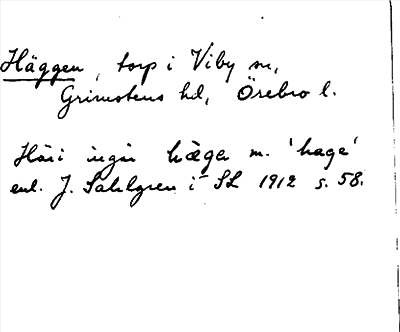 Häggen, torp i Viby sn,
Grimstens hd, Örebro l.
Häri ingår häge m. 'hage'
enl. J. Sahlgren i SL 1912 s. 58.